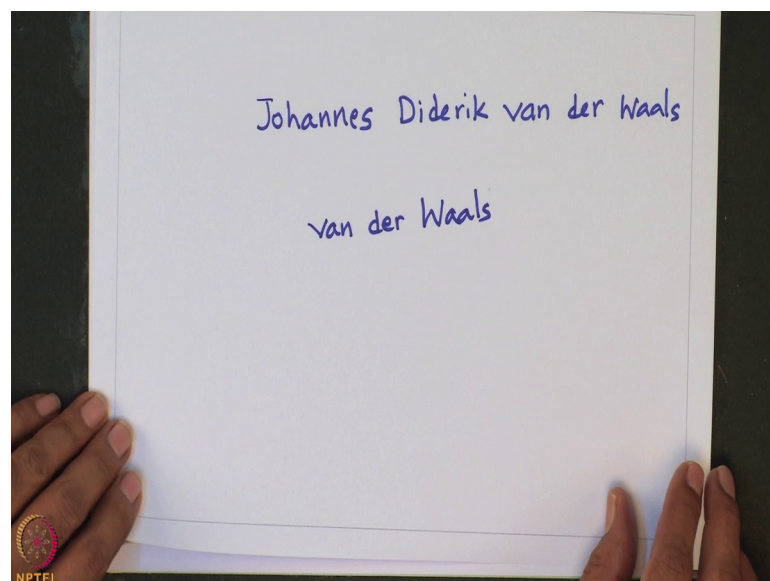 Johannes Diderik van der Waals
van der Waals
NPTEL